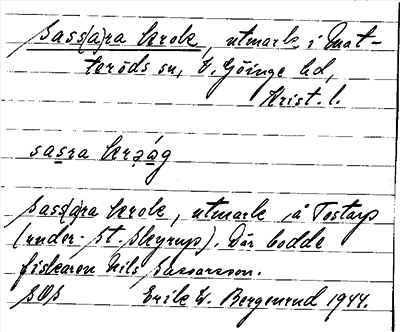 Sass(a)ra krok, utmark i Mat-
teröds sn, V. Göinge hd,
Krist. l.
sasra krǫ́g
Sass(a)ra krok, utmark å Tostarp
(under St. Skyrup). Där bodde
fiskaren Nils Sassarsson.
SOS Erik W. Bergenrud 1944.